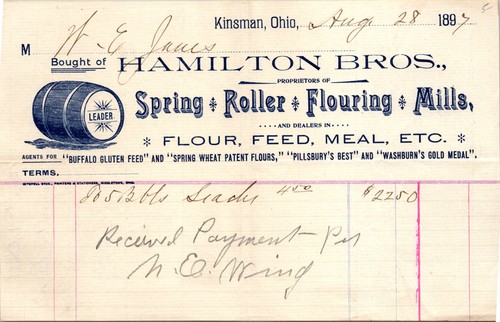 Kinsman, Ohio, Aug 28 1897
M W. E. Jones
Bought of HAMILTON BROS.,
PROPRIETORS OF
Spring * Roller * Flouring * Mills,
LEADER.
....AND DEALERS IN....
* FLOUR, FEED, MEAL, ETC. *
AGENTS FOR "BUFFALO GLUTEN FEED" AND "SPRING WHEAT PATENT FLOURS," "PILLSBURY'S BEST" AND "WASHBURN'S GOLD MEDAL".
TERMS,
5 Bbls Leader 4.50 $22.50
Received Payment Per
N. E. Wing